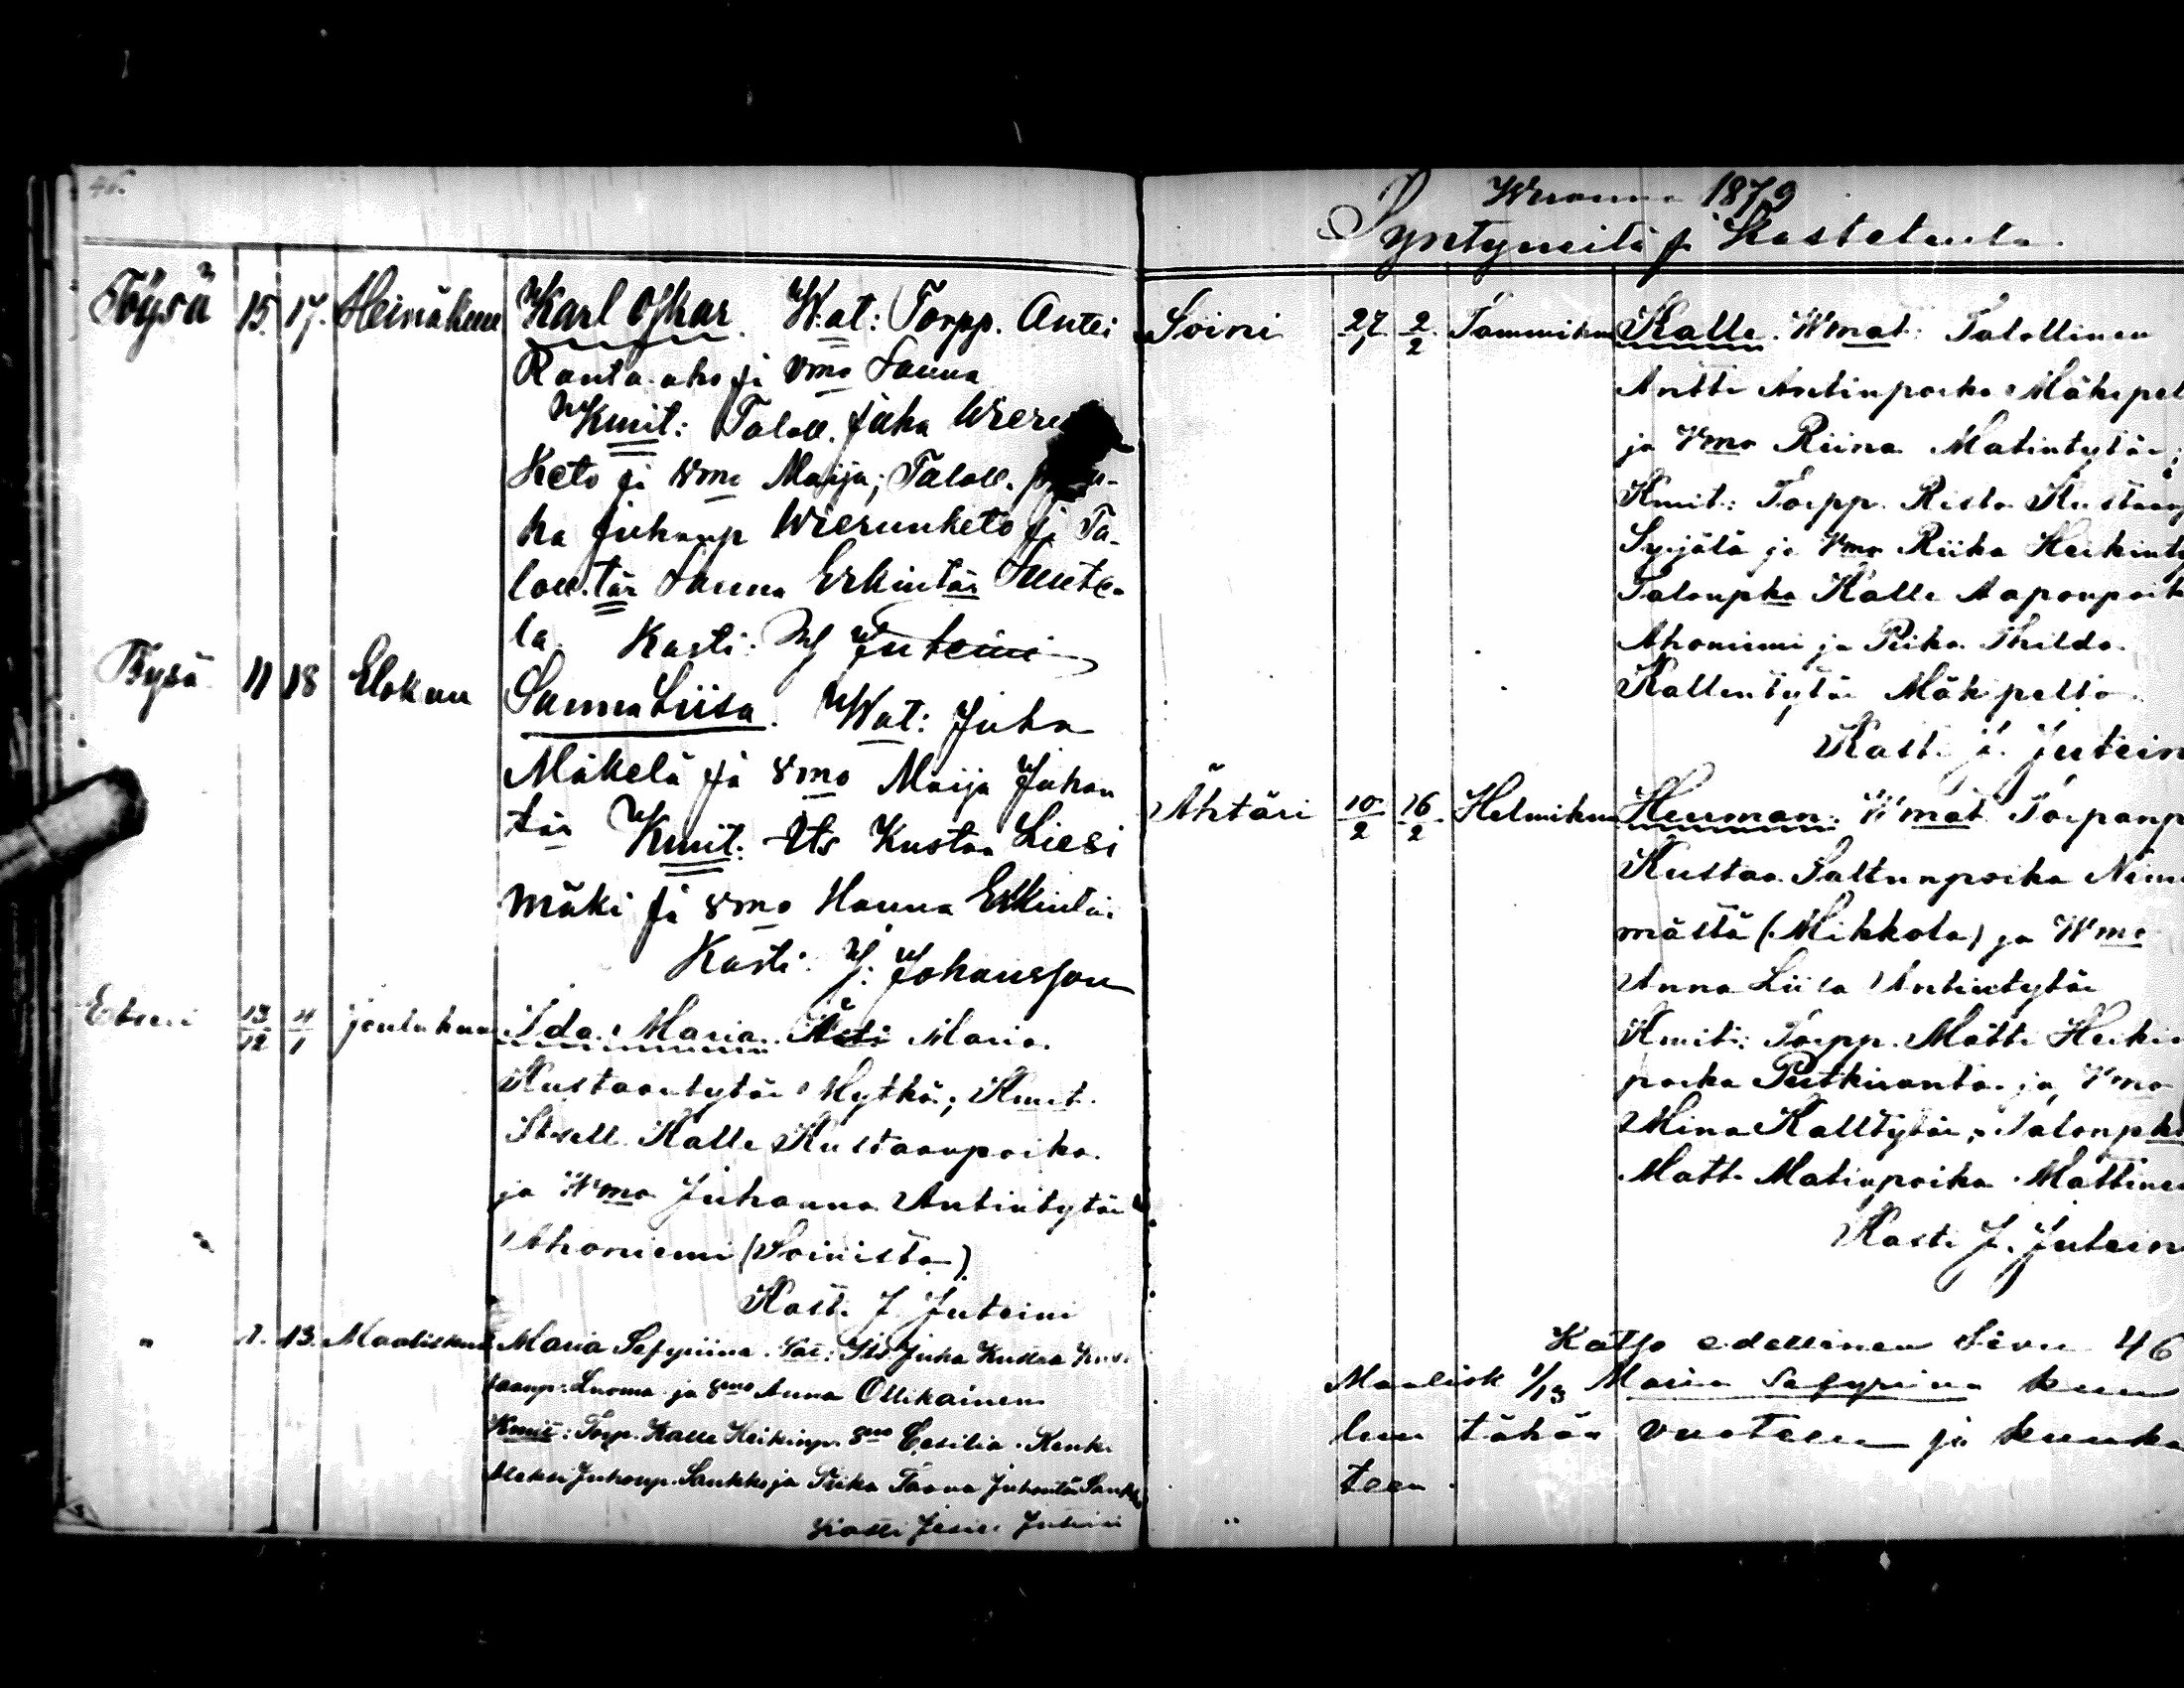 46.
Töysä 15. 17. Heinäkuu Karl Oskar. Wat: Torpp. Antti
Ranta-aho ja Vmo Sanna
Kmit: Taloll. Juha Wierun
Keto ja Vmo Maija; Taloll. p
ka Juhanp Wierunketo ja Ta-
loll.tär Sanna Erkintär Sante-
la. Kasti: J Juteini
Töysä 11 18 Elokuu Sanna Liisa. Wat: Juha
Mäkelä ja Vmo Maija Juhan
tär Kmit: Its Kustaa Liesi
mäki ja Vmo Hanna Erkintär
Kasti: J. Johansson
Etseri 13/12 4/1 joulukuu Ida Maria. Äiti Maria
Kustaantytär Mytkä; Kmit.
Kalle Kustaanpoika
ja Wmo Juhanna Antintytär
Ahoniemi (Soinista)
Kast. J Juteini
" 1. 13. Maaliskuu Maria Sefyriina. Wat: Its Juha Kustaa Kus-
taanp: Luoma ja Vmo Anna Ollikainen
Kmit: Torp. Kalle Heikinp. Vmo Cesilia. Renk.
Aleksi Juhonp. Saukko ja Piika Taava Juhontär Saukko
Kasti Juteini
Wuonna 1879
Syntyneitä ja Kastetuita.
Soini 27/1 2/2 Tammikuu Kalle. Wmat: Talollinen
Antti Antinpoika Mäkipel
ja Vmo Riina Matintytär;
Kmit: Torpp. Risto Kustaan
Syrjälä ja Vmo Riika Heikinty
Talonpka Kalle Aaponpoik
Ahoniemi ja Piika Thilda
Kallentytär Mäkipelto
Kast. J. Jutein
Ähtäri 10/2 16/2 Helmikuu Herman. Wmat Torpanp
Kustaa Saltunpoika Niini
mästä (Mikkola) ja Wmo
Anna Liisa Antintytär
Kmit: Torpp. Matti Heikin
poika Putkiranta ja Vmo
Miina Kalltytär; Talonpka
Matti Matinpoika Mattinen
Kasti J. Jutein
Katso edellinen Sivu 46
Maalisk 1/13 Maria Sefyriina kuu
luu tähän vuoteen ja kuuka
teen.
"